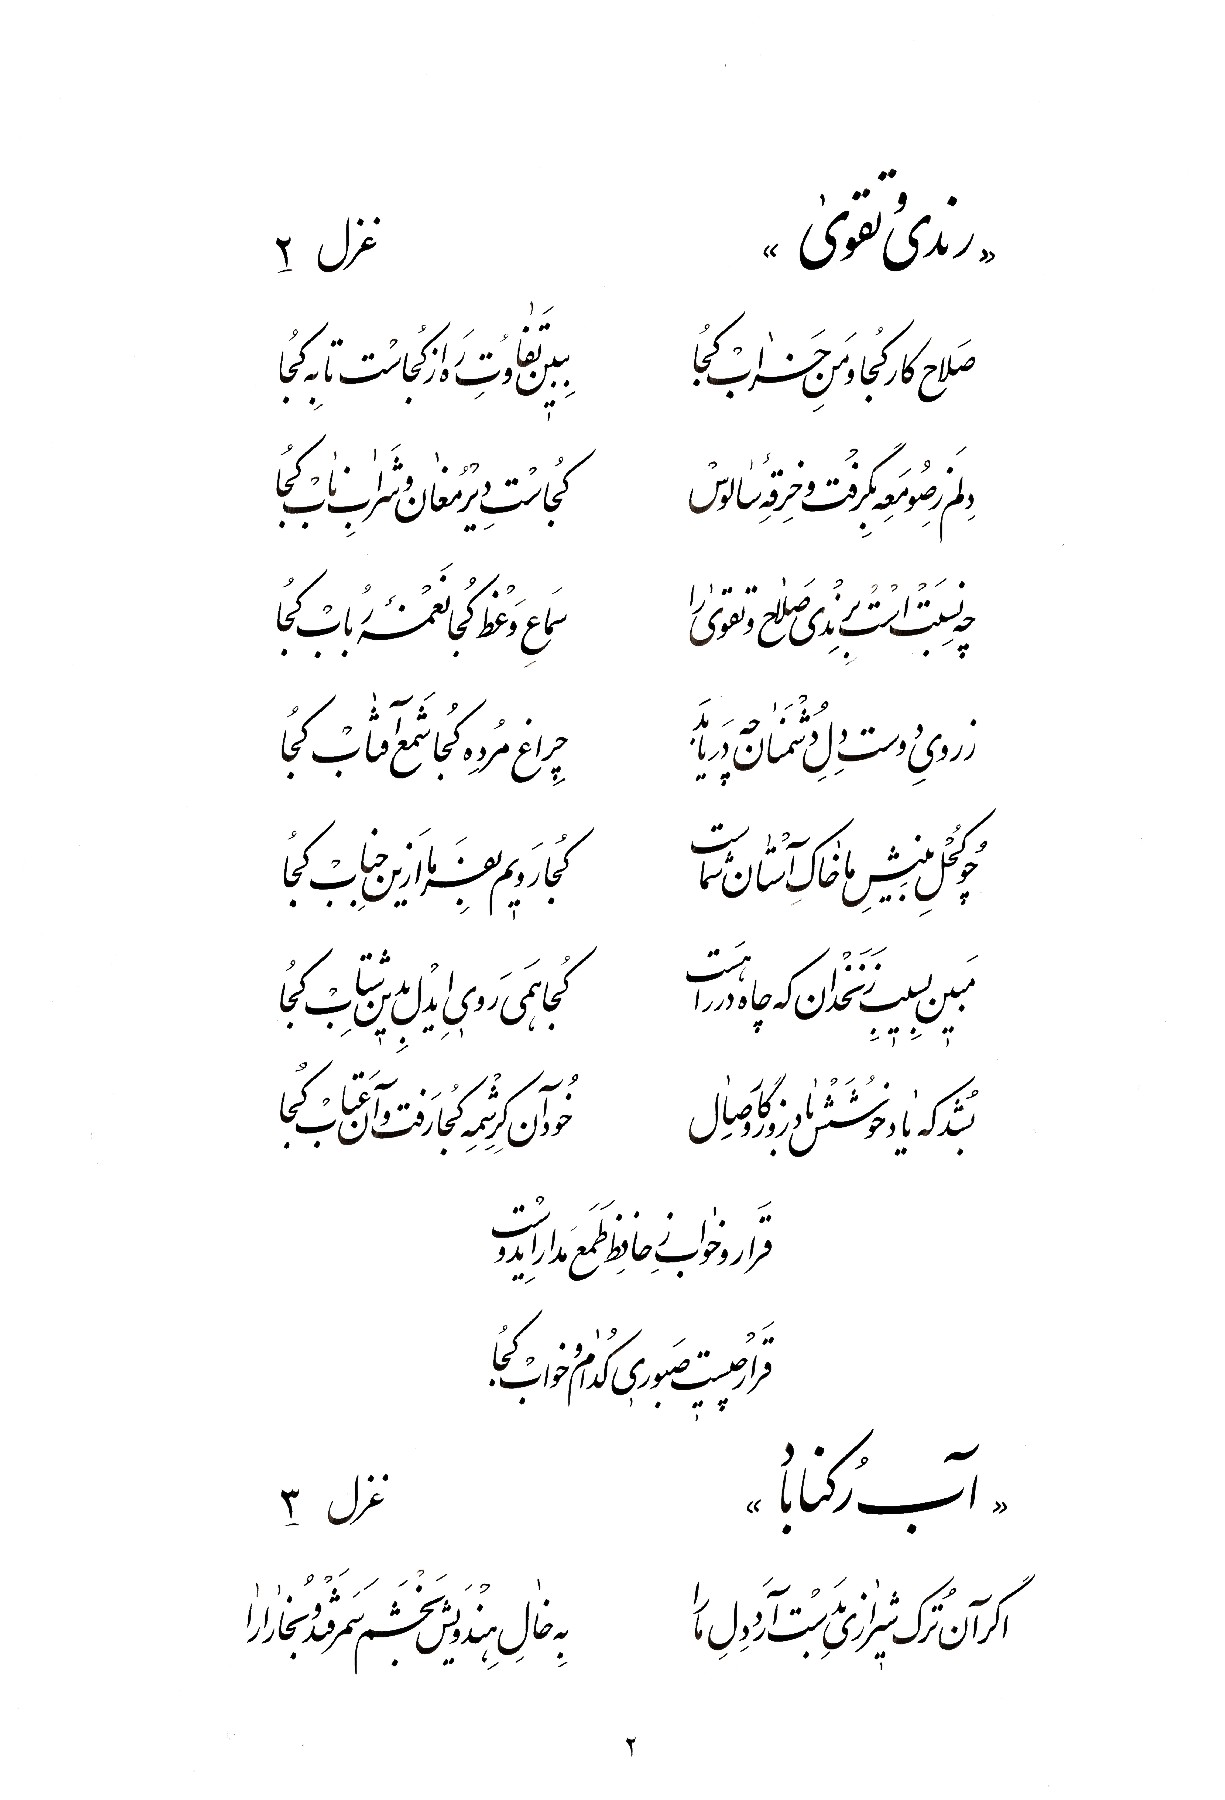 «رندی و تقویٰ» غزل ۲
صَلاح کار کُجا و مَنِ خَراٰبْ کُجا بِبینْ تَفٰاوُتِ رَه از کُجاسْت تا بِه کُجا
دِلَم زِ صُومَعِه بِگرِفْت و خِرقِهٔ سٰالوسْ کُجاسْت دِیْرِ مُغٰان و شَرٰابِ نٰابْ کُجا
چِه نِسْبَتْ اسْتْ بِرِنْدی صَلٰاح و تَقویٰ رٰا سَماعِ وَعْظ کُجا نَغْمِهٔ رُبابْ کُجا
ز رویِ دوست دِلِ دُشْمَنٰان چِه دَریٰابَد چِراغِ مُردِه کُجا شَمْعِ آفتٰابْ کُجا
چُو کُحْلِ بینِشِ ما خٰاکِ آسْتٰانِ شماست کُجا رَویم بِفَرما اَزین جِنٰابْ کُجا
مَبین بِسیبِ زَنَخْدان که چاه در راه اَست کُجا هَمی رَوی ایدِلْ بِدینْ شِتٰابْ کُجا
بُشُد که یٰاد خوُشَشْ بٰاد روزگارِ وِصٰال خُود آن کِرِشْمِه کُجا رَفت و آن عِتٰابْ کُجا
قَرار و خٰواب زِ حافِظ طَمَعْ مَدار ایدوسْت
قَرارْ چیست صَبوری کُدٰام و خوابْ کُجا
«آبِ رُکناباد» غزل ۳
اگر آن تُرک شیرٰازی بَدسْت آرَد دِلِ ما رٰا بِه خٰالِ هِنْدویَشْ بَخْشَم سَمَرْقَنْد و بُخارٰا رٰا
۲